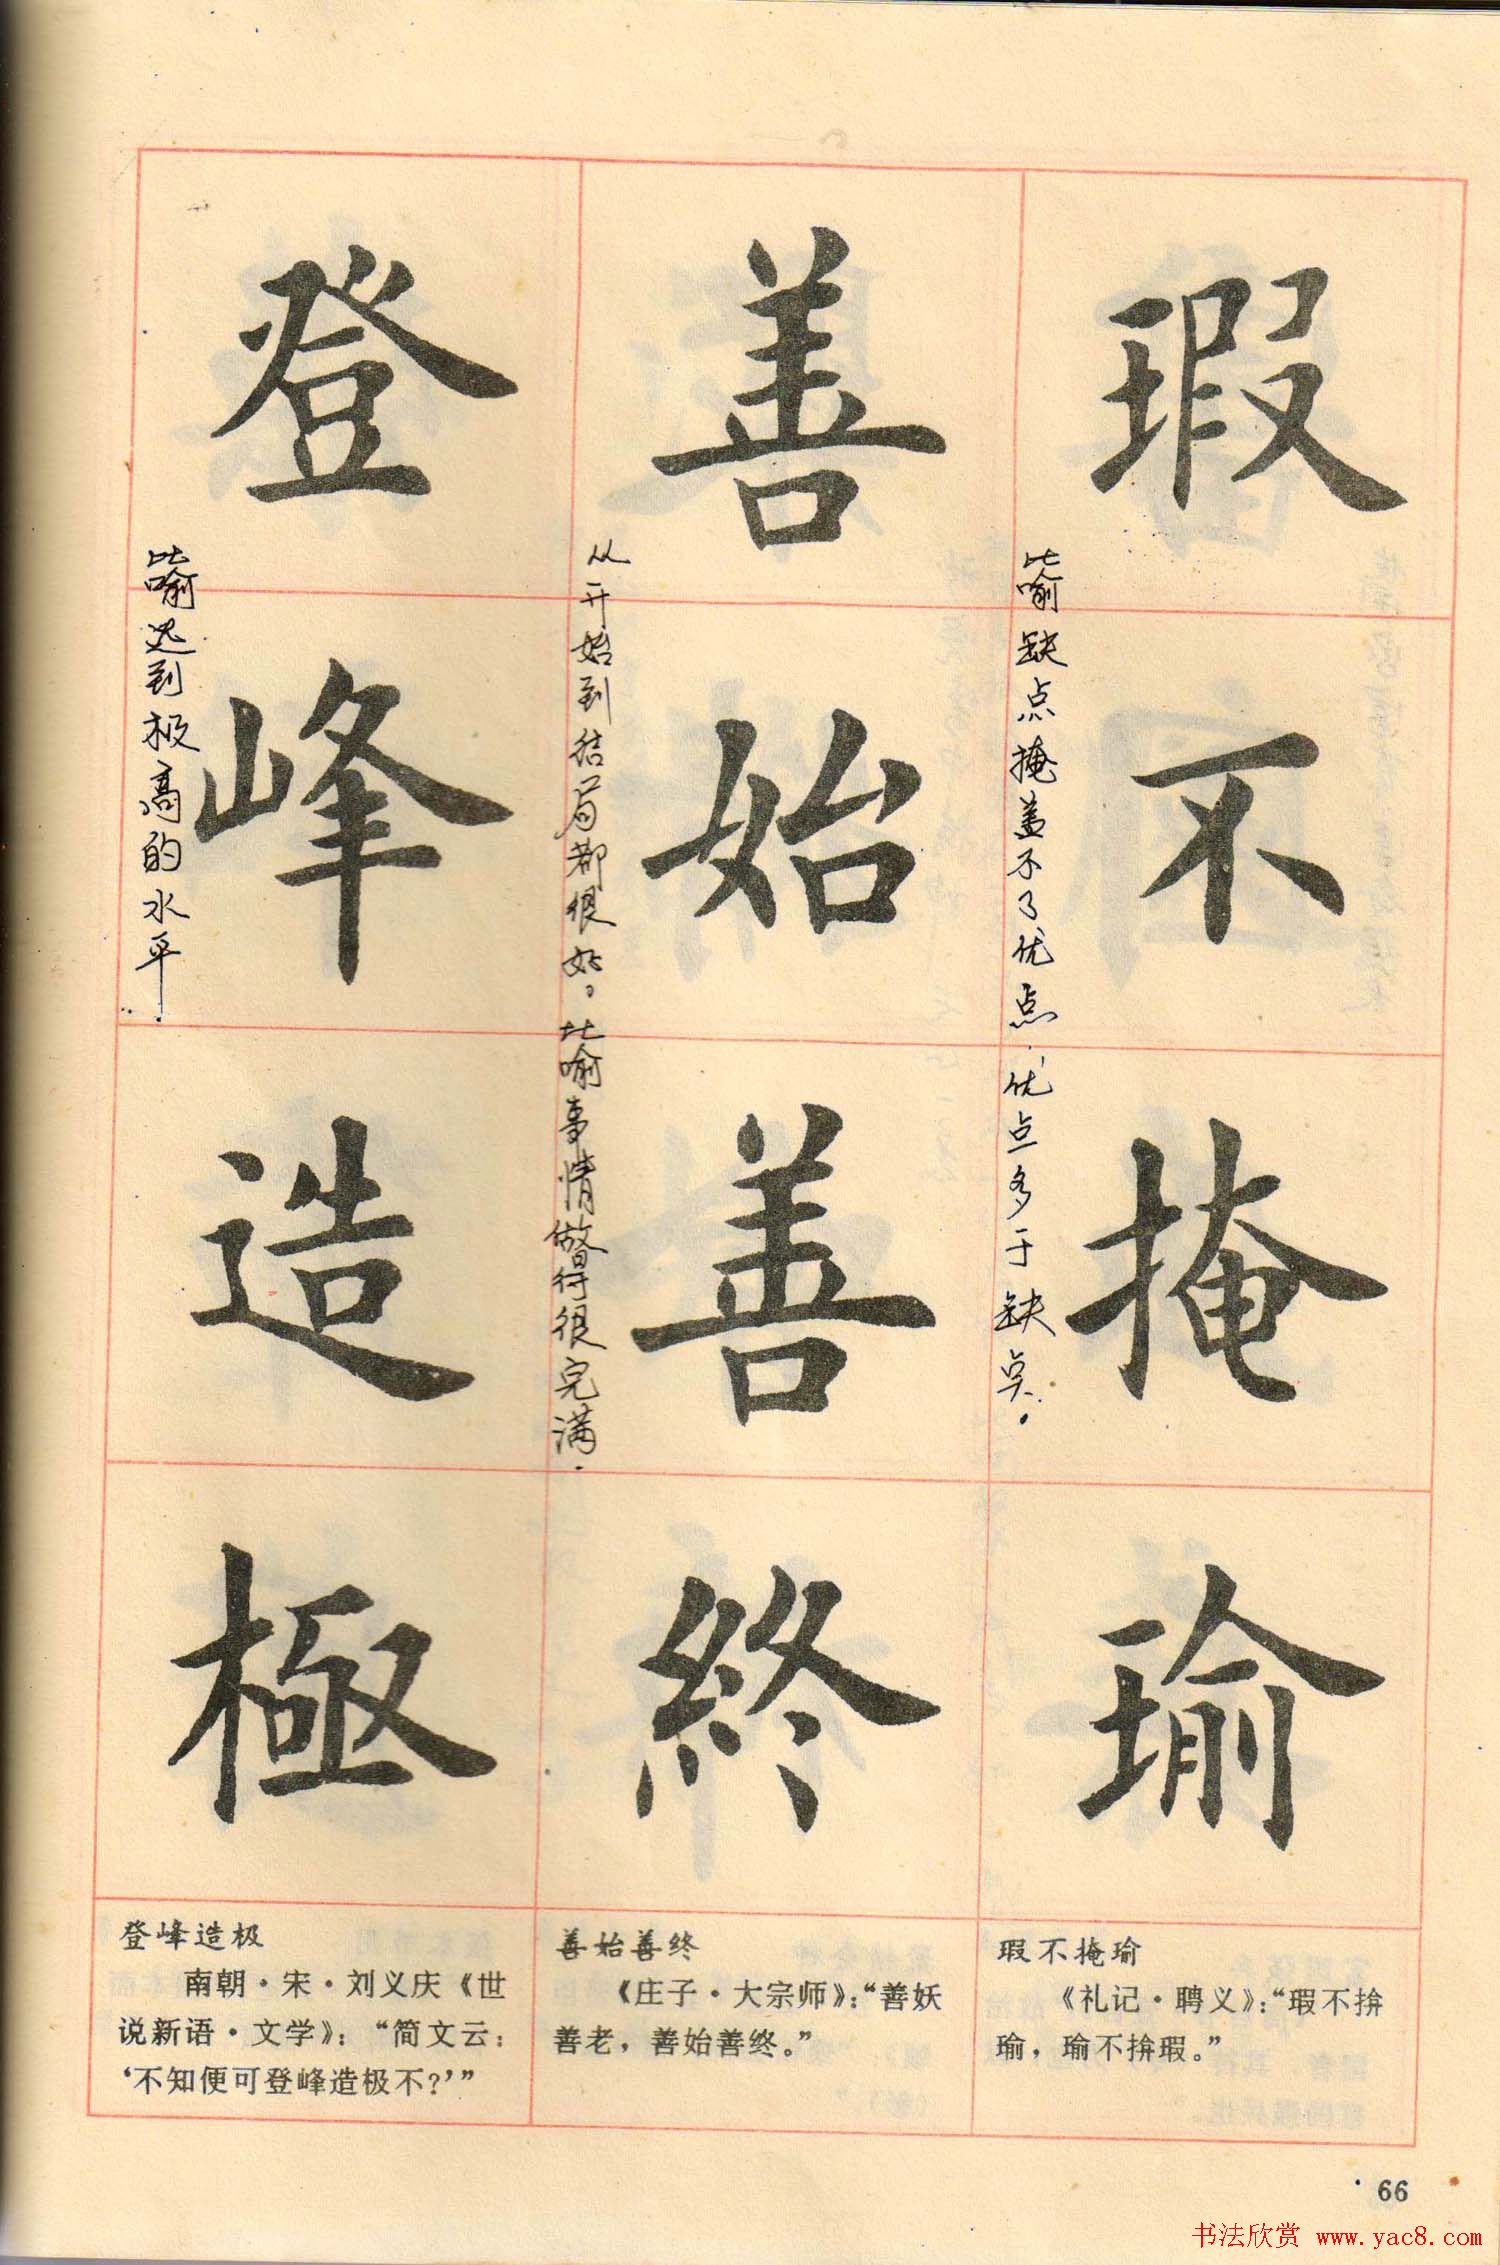 瑕不掩瑜
比喻缺点掩盖不了优点.优点多于缺点.
善始善終
从开始到结局都很好。比喻事情做得很完满.
登峰造極
比喻达到极高的水平.
瑕不掩瑜
《礼记·聘义》：“瑕不揜
瑜，瑜不揜瑕。”
善始善终
《庄子·大宗师》：“善妖
善老，善始善终。”
登峰造极
南朝·宋·刘义庆《世
说新语·文学》：“简文云：
‘不知便可登峰造极不？’”
66
书法欣赏 www.yac8.com